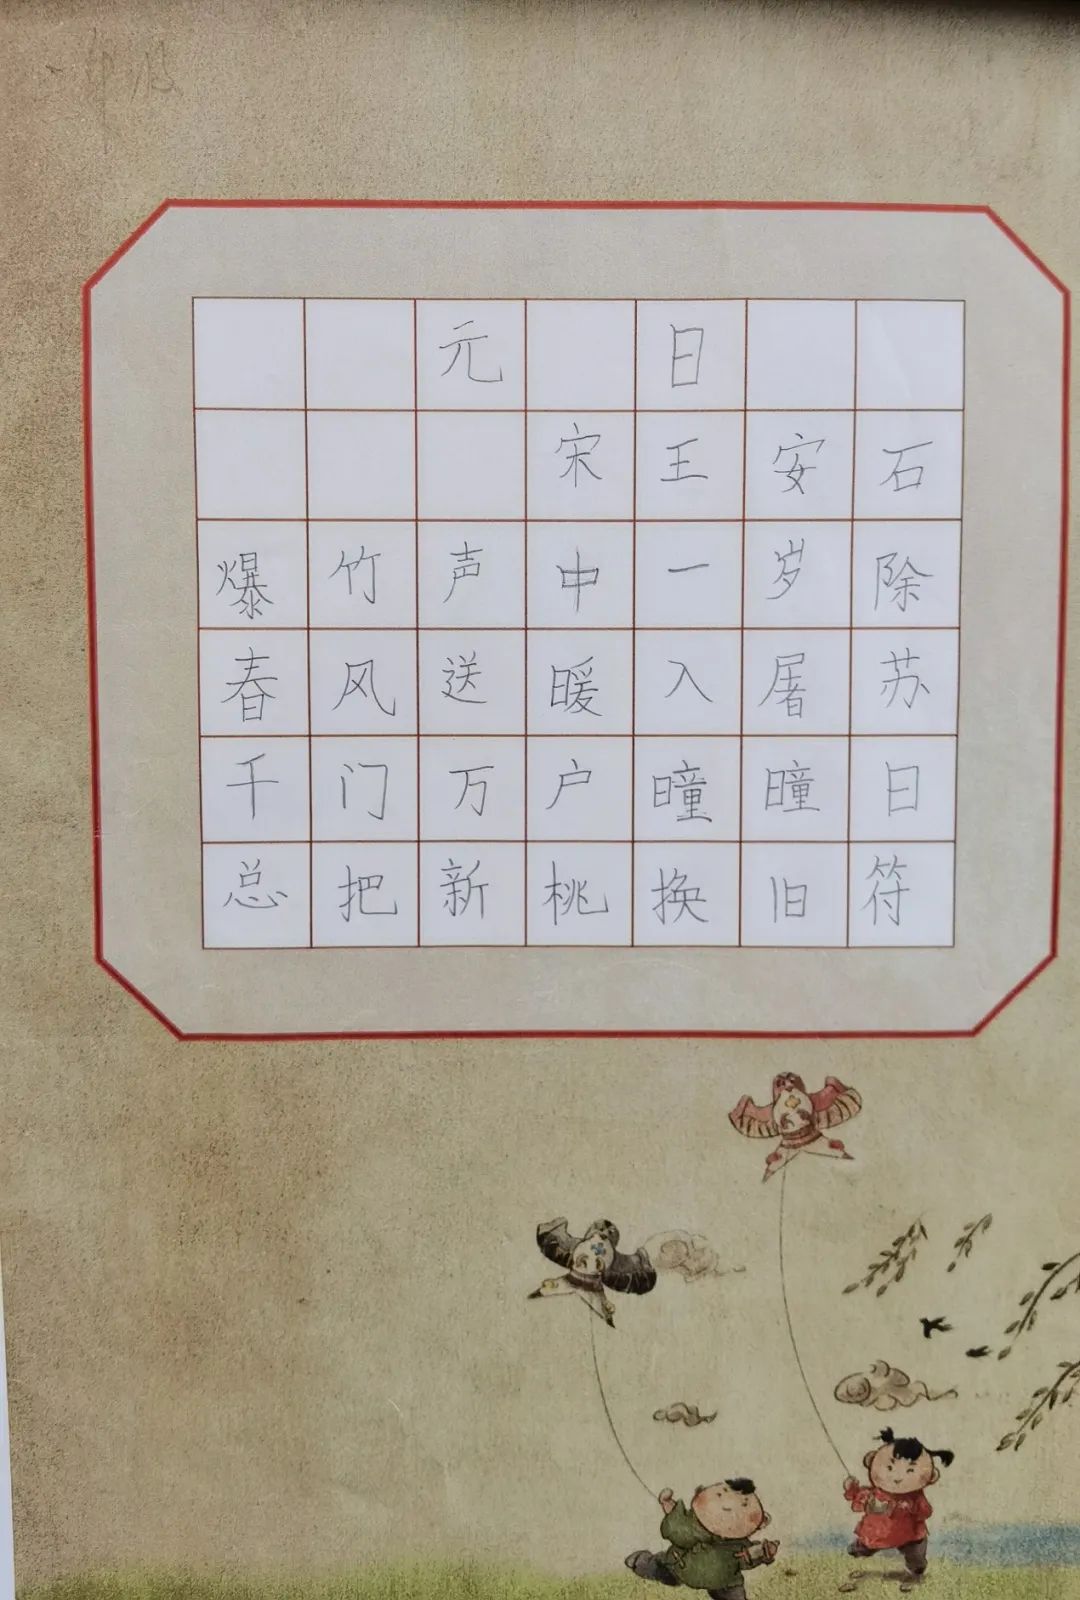 元日
宋王安石
爆竹声中一岁除
春风送暖入屠苏
千门万户曈曈日
总把新桃换旧符